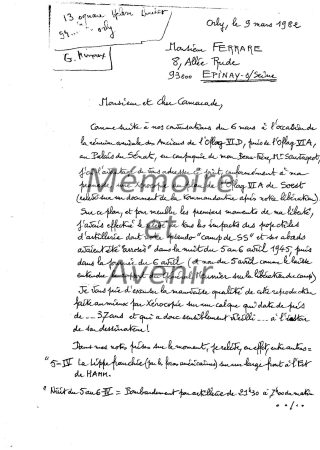 13 square
94..... Orly
G.
Orly, le 9 mars 1982
Monsieur FERRARE
8, Allée Rude
93800 EPINAY-s/Seine
Monsieur et Cher Camarade,
Comme suite à nos conversations du 6 mars à l'occasion de
la réunion amicale des Anciens de l'Oflag VI D, puis de l'Oflag VI A,
au Palais du Sénat, en compagnie de mon Beau-frère, Mr
j'ai de vous adresser ci-joint, conformément à ma
l'Oflag VI A de Soest
(relevé sur un document de la Kommandantur après notre libération)
Sur ce plan, et par meubler les premiers moments de ma liberté,
j'avais effectué le de tous les impacts des projectiles
d'artillerie dont notre pseudo "camp de SS" et ses abords
avaient été "arrosés" dans la nuit du 5 au 6 avril 1945, puis
dans la journée du 6 avril (et non du 5 avril comme le laisse
sur la libération du camp)
Je vous prie d'excuser la mauvaise qualité de cette reproduction
faite au mieux par Xérocopie sur un calque qui date de près
de .... 37 ans et qui a donc sensiblement vieilli .... à l'instar
de son dessinateur !
Dans mes notes prises sur le moment, je relève, en effet, entre autres =
"5-IV La Lippe franchie (par les forces américaines) sur un large front à l'Est
de HAMM.
"Nuit du 5 au 6 IV = Bombardement par artillerie de 23h30 à 7h00 du matin
../..
Mémoire
et
Avenir